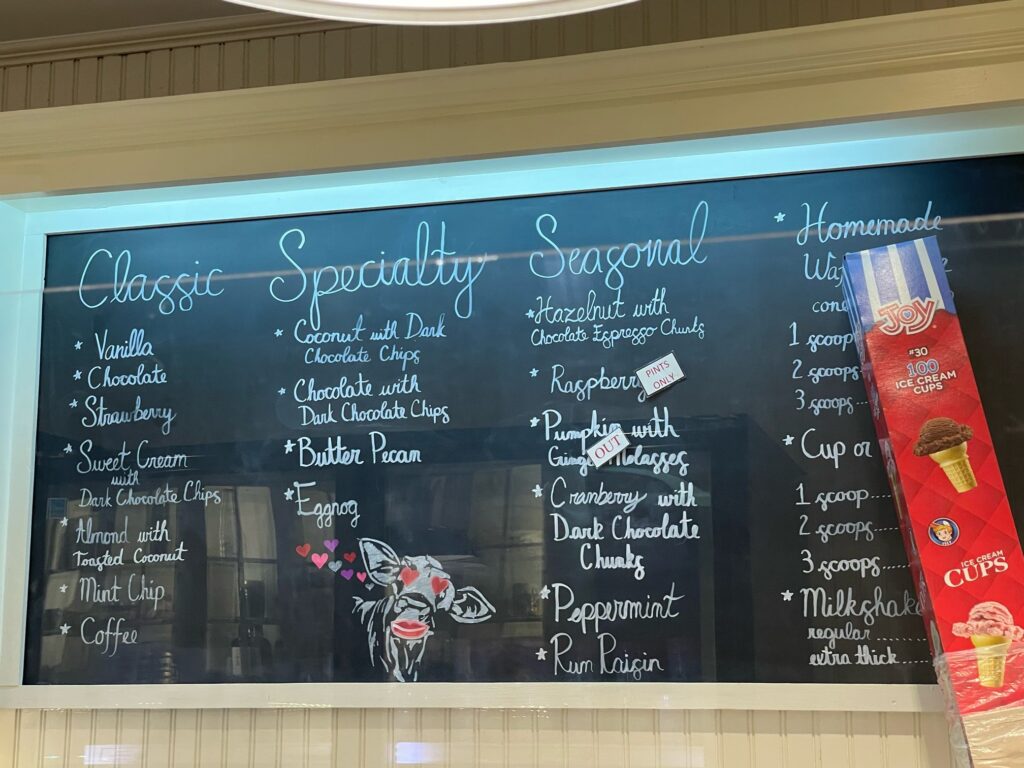 Classic
* Vanilla
* Chocolate
* Strawberry
* Sweet Cream
with
Dark Chocolate Chips
* Almond with
Toasted Coconut
* Mint Chip
* Coffee
Specialty
* Coconut with Dark
Chocolate Chips
* Chocolate with
Dark Chocolate Chips
* Butter Pecan
* Eggnog
Seasonal
* Hazelnut with
Chocolate Espresso Chunks
* Raspberry
PINTS
ONLY
* Pumpkin with
Molasses
OUT
* Cranberry with
Dark Chocolate
Chunks
* Peppermint
* Rum Raisin
* Homemade
1 scoop
2 scoops
3 scoops...
* Cup or
1 scoop.....
2 scoops.....
3 scoops.....
* Milkshake
regular .........
extra thick......
JOY
#30
100
ICE CREAM
CUPS
JOY
ICE CREAM
CUPS